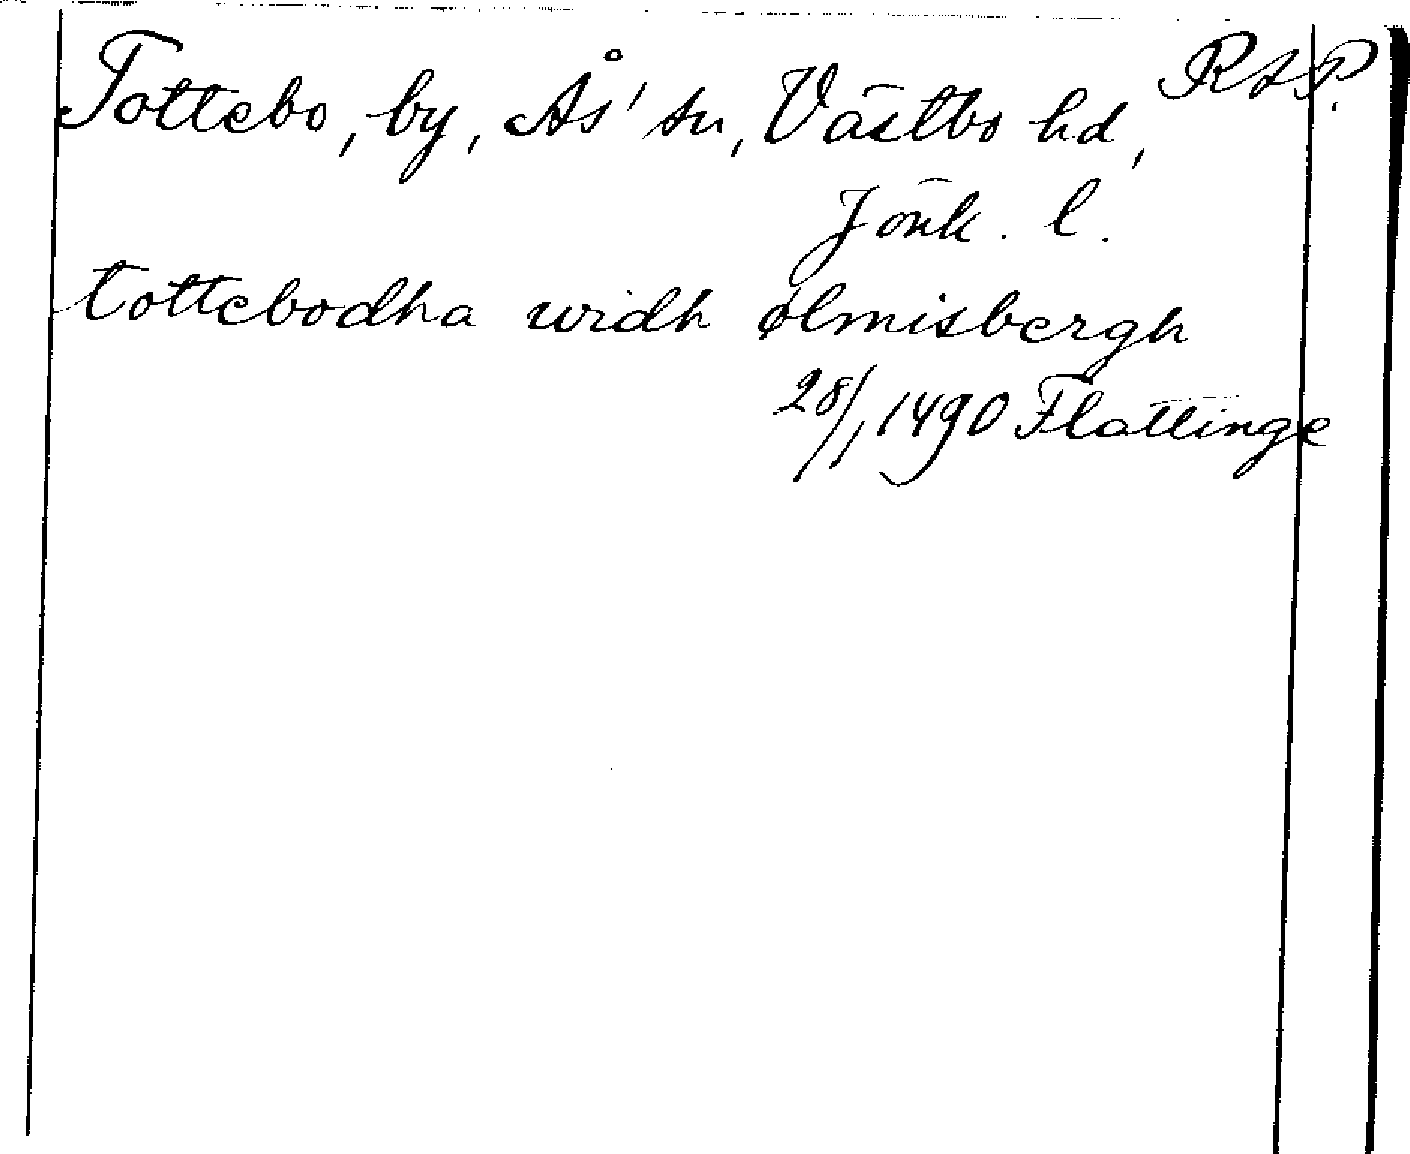 RAP.
Tottebo, by, Ås' sn, Västbo hd,
Jönk. l.
tottebodha widh ølmisbergh
28/1 1490 Flattinge